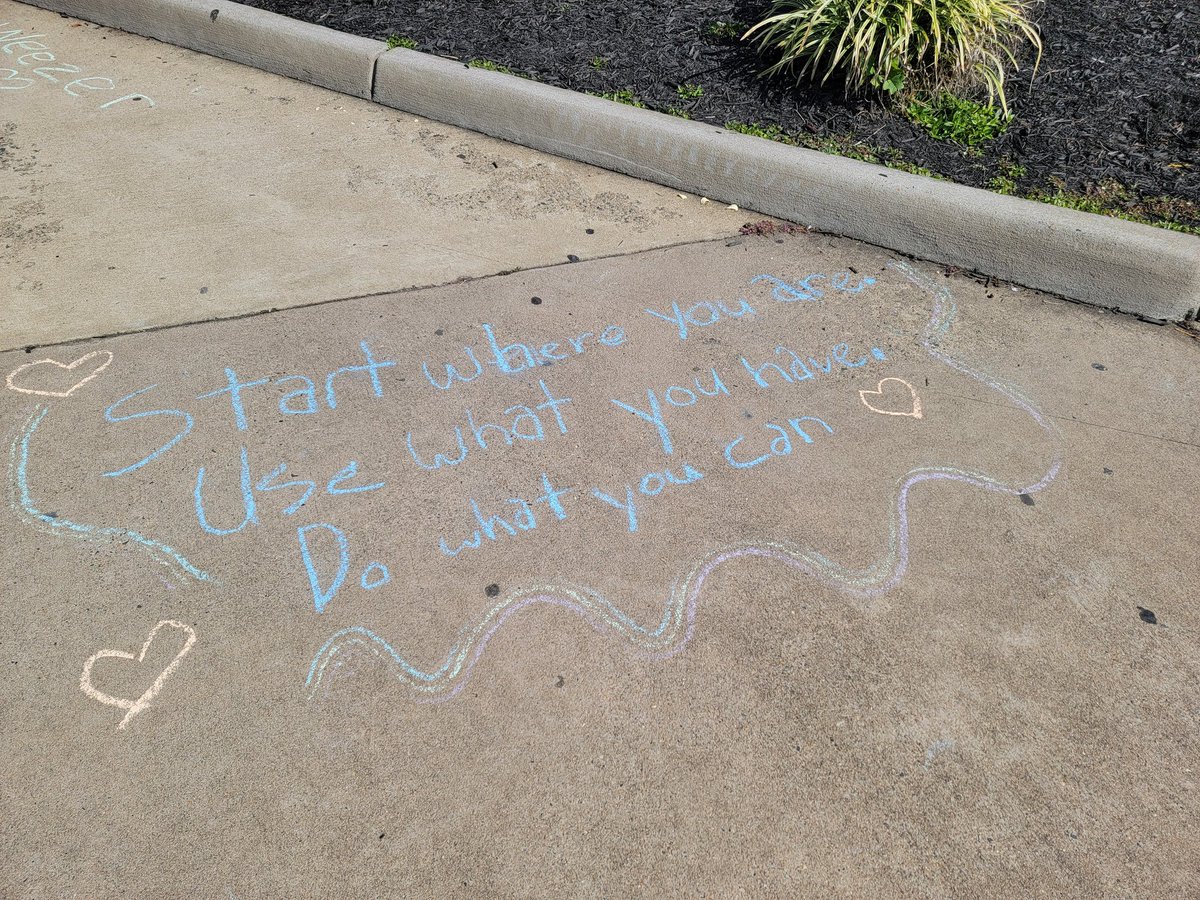 Weezer
Start where you are.
Use what you have.
Do what you can